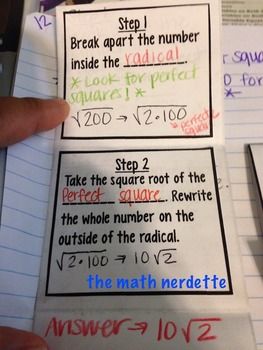 12
Step 1
Break apart the number
inside the radical.
* Look for perfect
squares! *
√200 → √2·100
perfect
square
Step 2
Take the square root of the
Perfect square. Rewrite
the whole number on the
outside of the radical.
√2·100 → 10√2
the math nerdette
Answer → 10√2